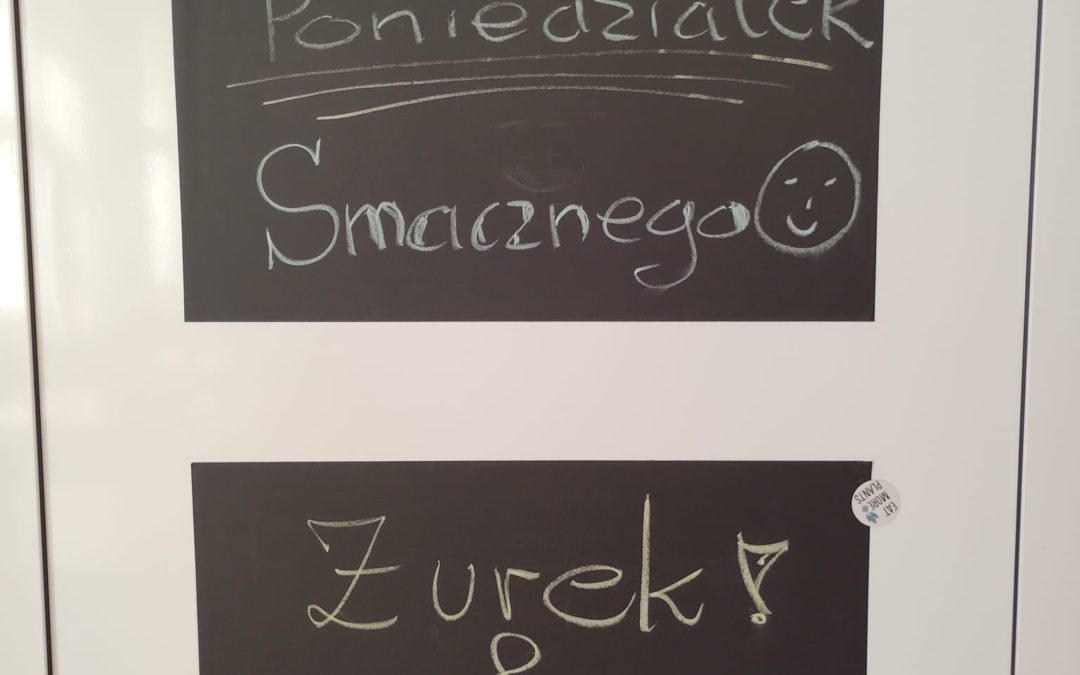 Poniedziałek
Smacznego
EAT
MORE
PLANTS
Żurek!